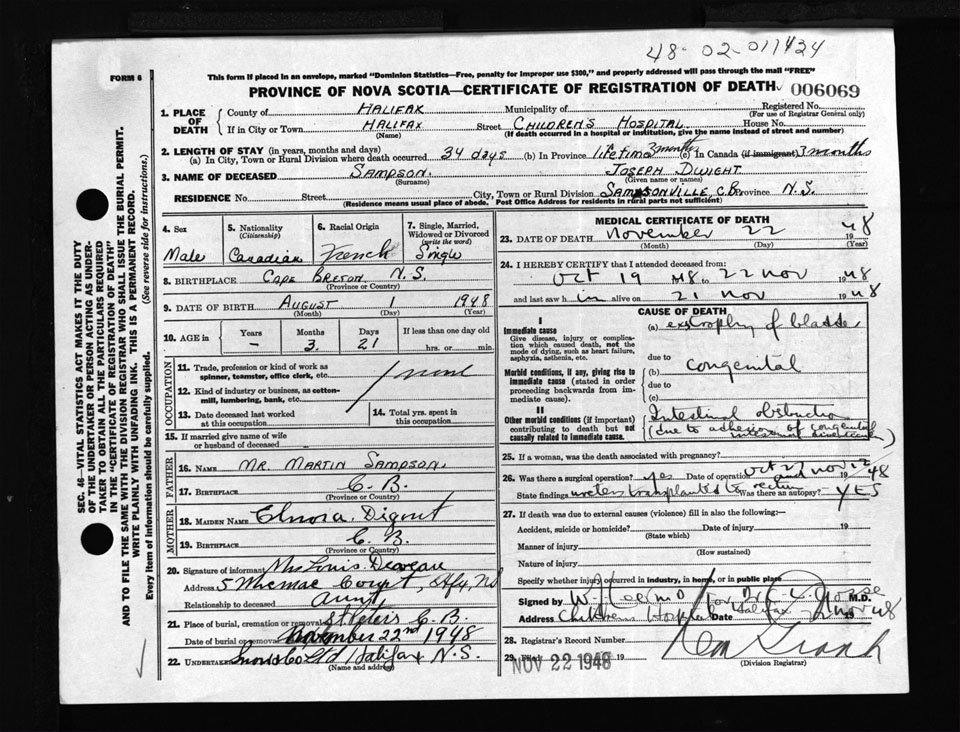 48-02-011434
FORM 6
This form if placed in an envelope, marked "Dominion Statistics—Free, penalty for improper use $300," and properly addressed will pass through the mail "FREE"
PROVINCE OF NOVA SCOTIA—CERTIFICATE OF REGISTRATION OF DEATH 006069
1. PLACE OF DEATH County of HALIFAX Municipality of Registered No.
(For use of Registrar General only)
If in City or Town HALIFAX Street CHILDRENS HOSPITAL House No.
(Name) (If death occurred in a hospital or institution, give the name instead of street and number)
2. LENGTH OF STAY (in years, months and days)
(a) In City, Town or Rural Division where death occurred 34 days (b) In Province lifetime 3 months (c) In Canada (if immigrant) 3 months
3. NAME OF DECEASED SAMPSON. JOSEPH DWIGHT
(Surname) (Given name or names)
RESIDENCE No. Street City, Town or Rural Division SAMPSONVILLE, C.B. Province N.S.
(Residence means usual place of abode. Post Office Address for residents in rural parts not sufficient)
4. Sex 5. Nationality (Citizenship) 6. Racial Origin 7. Single, Married, Widowed or Divorced (write the word)
Male Canadian French Single
8. BIRTHPLACE CAPE BRETON N.S.
(Province or Country)
9. DATE OF BIRTH AUGUST 1 1948
(Month) (Day) (Year)
10. AGE in Years Months Days If less than one day old
– 3. 21 hrs. or min.
OCCUPATION
11. Trade, profession or kind of work as spinner, teamster, office clerk, etc.
none
12. Kind of industry or business, as cotton-mill, lumbering, bank, etc.
13. Date deceased last worked at this occupation
14. Total yrs. spent in this occupation
15. If married give name of wife or husband of deceased
FATHER
16. NAME MR. MARTIN SAMPSON.
17. BIRTHPLACE C. B.
(Province or Country)
MOTHER
18. MAIDEN NAME Elnora
19. BIRTHPLACE C. B.
(Province or Country)
20. Signature of informant Mrs Louis Deveau
Address 5 Micmac Court, Hfx, NS
Relationship to deceased aunt
21. Place of burial, cremation or removal St Peters C.B.
Date of burial or removal November 22nd 1948
22. Undertaker Snows Co Ltd Halifax N.S.
(Name and address)
MEDICAL CERTIFICATE OF DEATH
23. DATE OF DEATH November 22 1948
(Month) (Day) (Year)
24. I HEREBY CERTIFY that I attended deceased from:
Oct 19 1948 to 22 nov 1948
and last saw him alive on 21 nov 1948
CAUSE OF DEATH
I
Immediate cause
Give disease, injury or complication which caused death, not the mode of dying, such as heart failure, asphyxia, asthenia, etc.
(a) exstrophy of bladder
due to
Morbid conditions, if any, giving rise to immediate cause (stated in order proceeding backwards from immediate cause).
(b) congenital
due to
(c)
II
Other morbid conditions (if important) contributing to death but not causally related to immediate cause.
Intestinal obstruction
(due to adhesion of congenital
25. If a woman, was the death associated with pregnancy?
26. Was there a surgical operation? yes Date of operation Oct 27 and nov 12 1948
State findings ureters transplanted to rectum Was there an autopsy? YES
27. If death was due to external causes (violence) fill in also the following:—
Accident, suicide or homicide? Date of injury 19
(State which)
Manner of injury
(How sustained)
Nature of injury
Specify whether injury occurred in industry, in home, or in public place
Signed by for Dr M.D.
Address Childrens Hospital Halifax Date nov 1948
28. Registrar's Record Number
29. Filed NOV 22 1948 19
(Division Registrar)
SEC. 46—VITAL STATISTICS ACT MAKES IT THE DUTY OF THE UNDERTAKER OR PERSON ACTING AS UNDERTAKER TO OBTAIN ALL THE PARTICULARS REQUIRED IN THE "CERTIFICATE OF REGISTRATION OF DEATH" AND TO FILE THE SAME WITH THE DIVISION REGISTRAR WHO SHALL ISSUE THE BURIAL PERMIT.
WRITE PLAINLY WITH UNFADING INK. THIS IS A PERMANENT RECORD.
Every item of information should be carefully supplied. (See reverse side for instructions.)